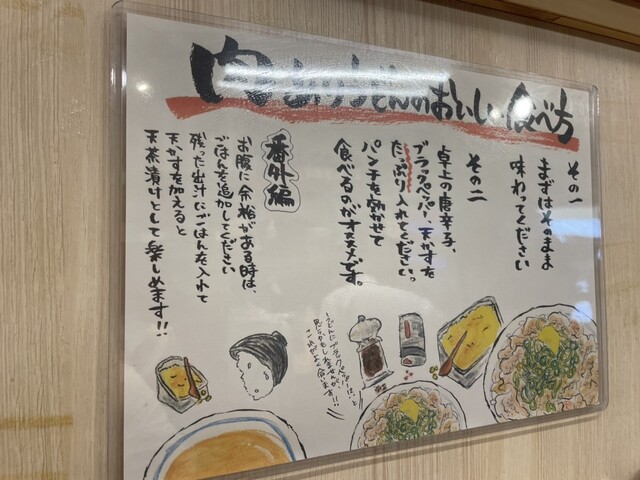 肉ぶっかけうどんのおいしい食べ方
その一
まずはそのまま
味わってください
その二
卓上の唐辛子、
ブラックペッパー、天かすを
たっぷり入れてください。
パンチを効かせて
食べるのがオススメです。
番外編
お腹に余裕がある時は、
ごはんを追加してください
残った出汁にごはんを入れて
天かすを加えると
天茶漬けとして楽しめます!!